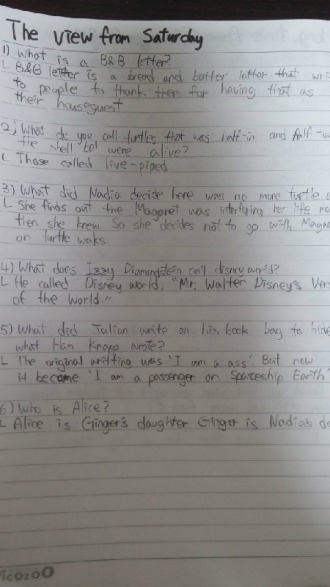 The view from Saturday
1) What is a B&B letter?
L B&B letter is a bread and batter letter that
to people to thank them for having that as
their houseguest
2) What do you call turtles that was half-in and half-
the shell but were alive?
L Those called live-piped
3) What did Nadia decide there was no more turtle
L She finds out the Magaret was interfering her life
then she knew. So she decides not to go with
on turtle walks
4) What does Izzy Diamondstein call disney world?
L He called Disney world, "Mr. Walter Disney's
of the World."
5) What did Julian write on his book bag to
what Ham Knapp wrote?
L The original writting was 'I am a ass' But now
it become 'I am a passenger on Spaceship Earth'
6) Who is Alice?
L Alice is Ginger's daughter Ginger is Nadia's
Picozoo